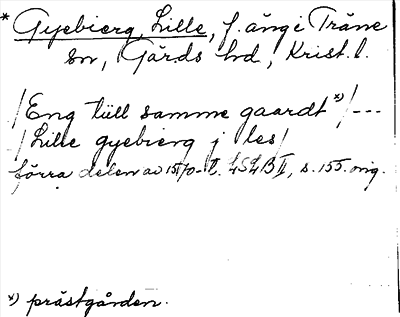 * Gyebierg, Lille, f. äng i Träne
sn, Gärds hd, Krist. l.
/Eng tüll samme gaardt *)/---
/Lille gyebierg j les/
förra delen av 1570-t. LSLB II, s. 155. orig.
*) prästgården.